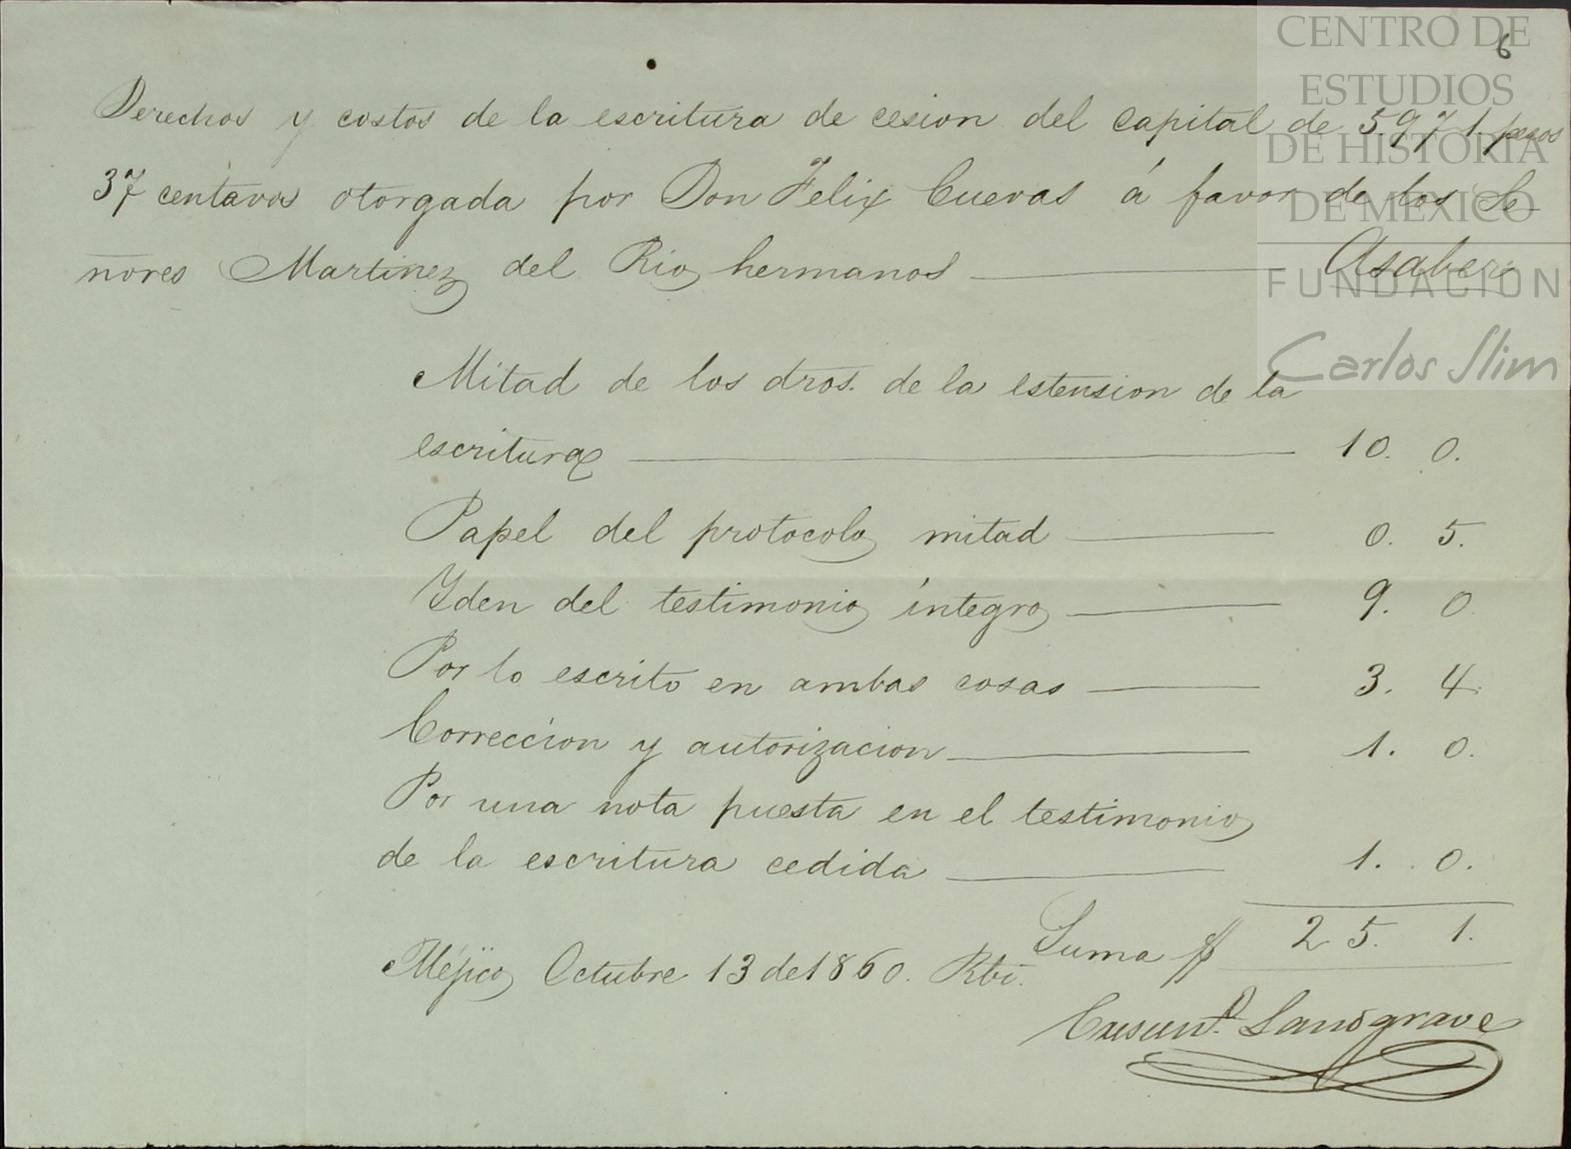 6
CENTRO DE
ESTUDIOS
DE HISTORIA
DE MEXICO
FUNDACION
Carlos Slim
Derechos y costos de la escritura de cesion del capital de 5.971 pesos
37 centavos otorgada por Don Felix Cuevas á favor de los Se-
ñores Martinez del Rio hermanos Asaber
Mitad de los dros. de la estension de la
escritura 10. 0.
Papel del protocolo mitad 0. 5.
Yden del testimonio íntegro 9. 0
Por lo escrito en ambas cosas 3. 4.
Correccion y autorizacion 1. 0.
Por una nota puesta en el testimonio
de la escritura cedida 1. 0.
Suma $ 25. 1.
Méjico Octubre 13 de 1860. Rbi.
Landgrave